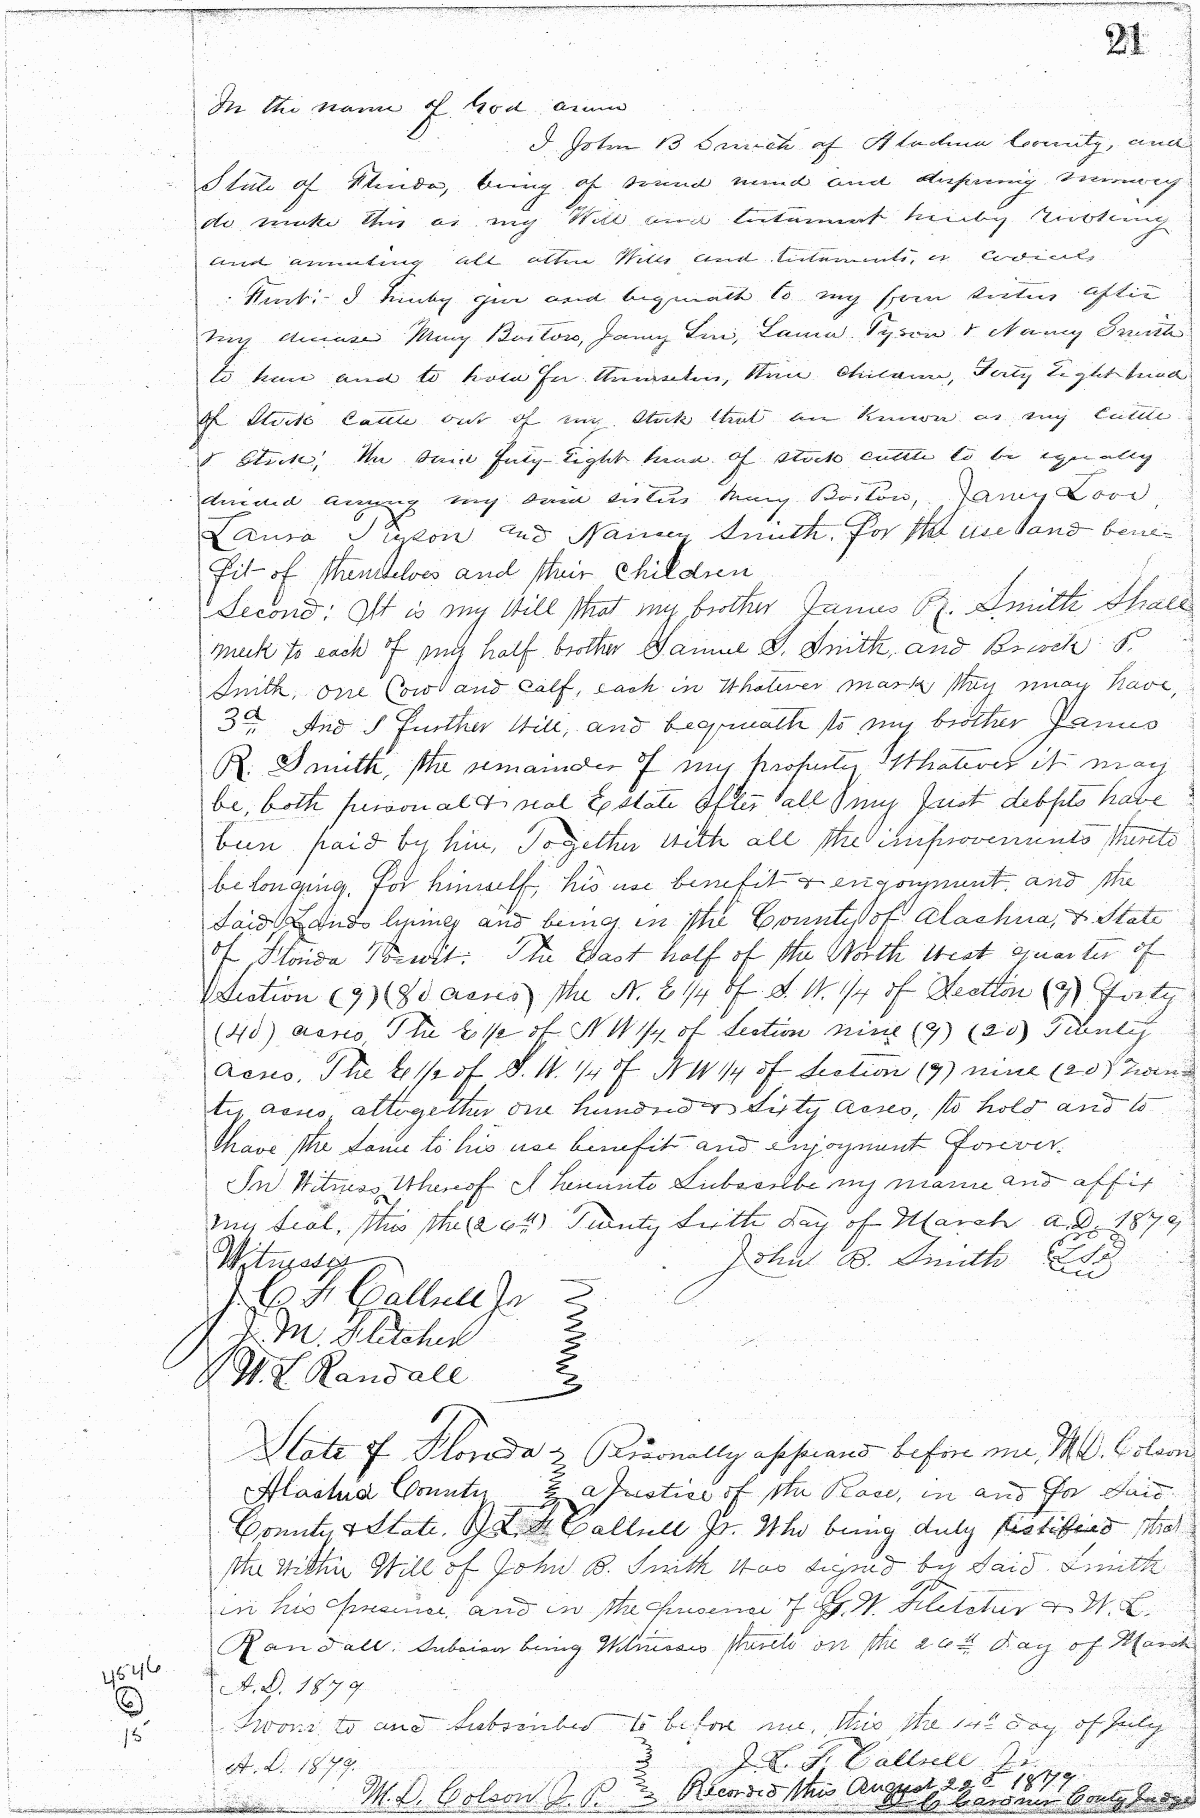 21
In the name of God amen
I John B Smith of Alachua County, and
State of Florida, being of sound mind and disposing memory
do make this as my Will and testament hereby revoking
and annulling all other Wills and testaments, or codicils
First:- I hereby give and bequeath to my four sisters after
my decease Mary Boston, Janey Love, Laura Tyson & Nancy Smith
to have and to hold for themselves, their children, Forty Eight head
of Stock Cattle out of my stock that are known as my Cattle
& Stock; the said forty Eight head of stock cattle to be equally
divided among my said sisters Mary Boston, Janey Love,
Laura Tyson and Nancy Smith. for the use and bene=
fit of themselves and their children
Second: It is my Will that my brother James R. Smith Shall
mark to each of my half brother Samuel S. Smith, and Brock P.
Smith, one Cow and calf, each in whatever mark they may have,
3d. And I further Will, and bequeath to my brother James
R. Smith, the remainder of my property Whatever it may
be, both personal & real Estate after all my Just debpts have
been paid by him, Together with all the improvements thereto
belonging, for himself, his use benefit & engoryment, and the
Said Lands lyining and being in the County of Alachua, & State
of Florida To-wit: The East half of the North West quarter of
Section (9) (80 acres) the N. E 1/4 of S. W. 1/4 of Section (9) forty
(40) acres The E 1/2 of NW 1/4 of Section nine (9) (20) Twenty
Acres. The E 1/2 of S. W. 1/4 of NW 1/4 of Section (9) nine (20) Twen=
ty acres, altogether one hundred & Sixty Acres, to hold and to
have the same to his use benefit and enjoyment forever.
In Witness Whereof I hereunto Subscribe my name and affix
my Seal, this the (26th) Twenty Sixth day of March A.D. 1879
Witnesses John B. Smith
J. M. Fletcher
W. L. Randall
State of Florida Personally appeared before me, M.D. Colson
Alachua County a Justice of the Peace, in and for Said
County & State. Jr. Who being duly testified that
the within Will of John B. Smith was signed by Said Smith
in his presence and in the presence of G. W. Fletcher & W. L.
Randall. being Witnesses thereto on the 26th day of March
A.D. 1879
Sworn to and Subscribed to before me, this the 14th day of July
A.D. 1879.
M.D. Colson J. P. Recorded this August 22d 1879
Gardner County Judge
4546
6
15